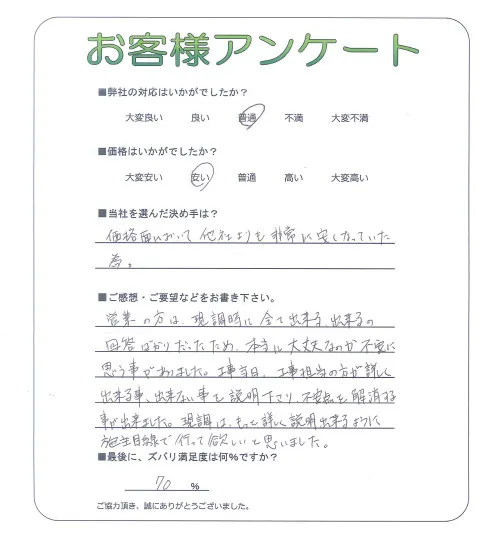 お客様アンケート
■弊社の対応はいかがでしたか？
大変良い 良い 普通 不満 大変不満
■価格はいかがでしたか？
大変安い 安い 普通 高い 大変高い
■当社を選んだ決め手は？
価格面において他社よりも非常に安くなっていた
為。
■ご感想・ご要望などをお書き下さい。
営業の方は、現調時に全て出来る、出来るの
回答ばかりだったため、本当に大丈夫なのか不安に
思う事がありました。工事当日、工事担当の方が詳しく
出来る事、出来ない事を説明下さり、不安点を解消する
事が出来ました。現調は、もっと詳しく説明出来るように
施主目線で行って欲しいと思いました。
■最後に、ズバリ満足度は何％ですか？
70 ％
ご協力頂き、誠にありがとうございました。